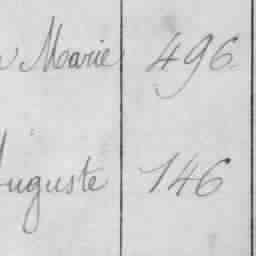 Marie 496
Auguste 146